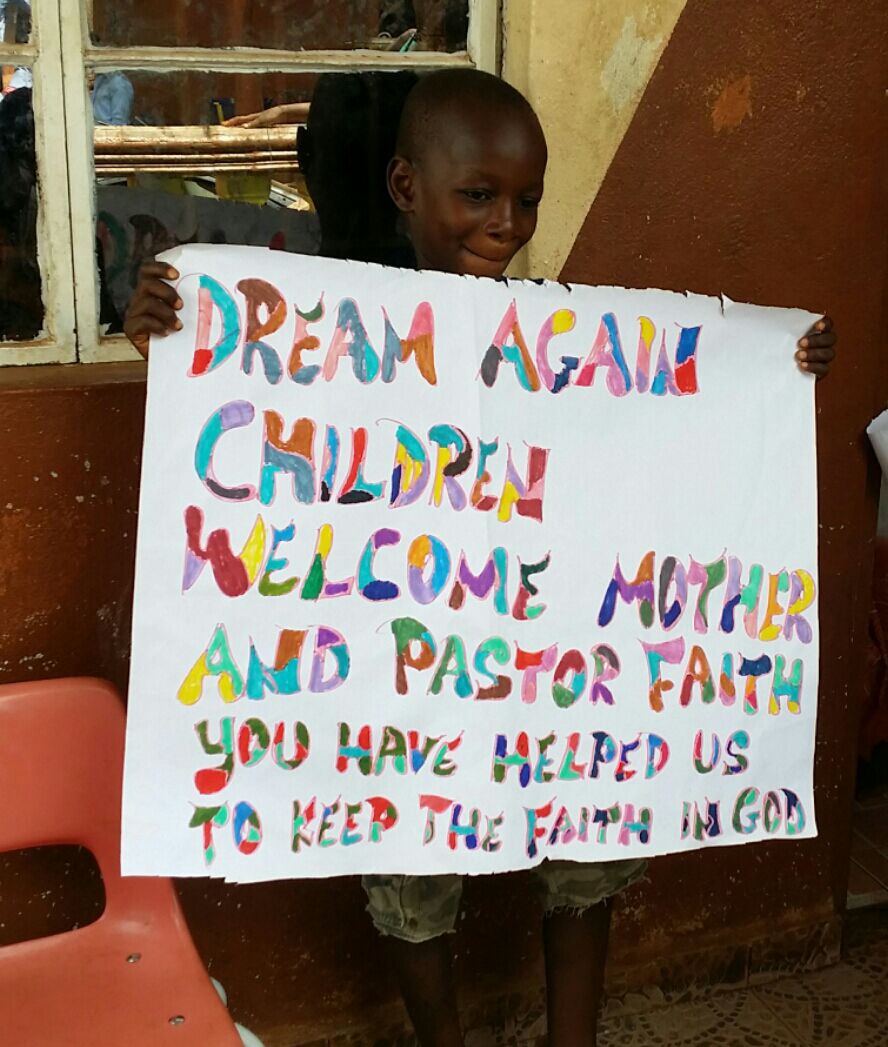 DREAM AGAIN
CHILDREN
WELCOME MOTHER
AND PASTOR FAITH
YOU HAVE HELPED US
TO KEEP THE FAITH IN GOD